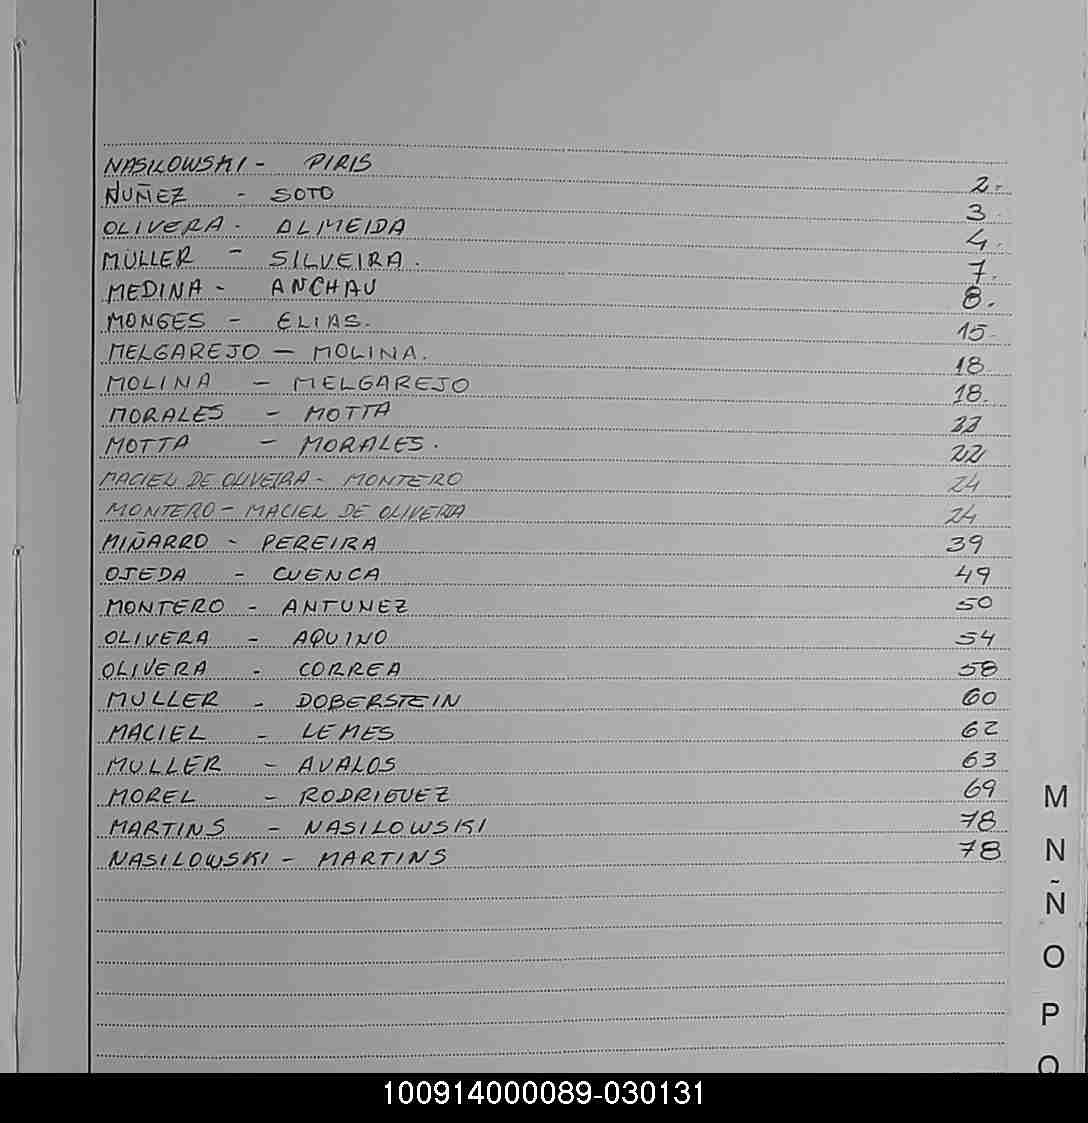 NASILOWSKI - PIRIS 2.
NUÑEZ - SOTO 3.
OLIVERA - ALMEIDA 4.
MÜLLER - SILVEIRA. 7.
MEDINA - ANCHAU 8.
MONGES - ELIAS. 15.
MELGAREJO - MOLINA. 18.
MOLINA - MELGAREJO 18.
MORALES - MOTTA 22
MOTTA - MORALES. 22
MACIEL DE OLIVEIRA - MONTERO 24
MONTERO - MACIEL DE OLIVEIRA 24
MIÑARRO - PEREIRA 39
OJEDA - CUENCA 49
MONTERO - ANTUNEZ 50
OLIVERA - AQUINO 54
OLIVERA - CORREA 58
MULLER - DOBERSTEIN 60
MACIEL - LEMES 62
MULLER - AVALOS 63
MOREL - RODRIGUEZ 69
MARTINS - NASILOWSKI 78
NASILOWSKI - MARTINS 78
M
N
Ñ
O
P
Q
100914000089-030131